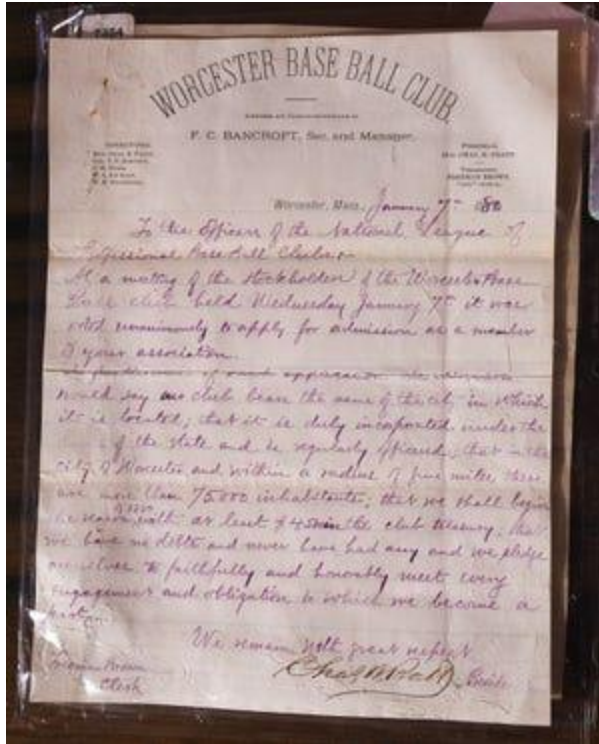 WORCESTER BASE BALL CLUB.
F. C. BANCROFT, Sec. and Manager.
DIRECTORS
PRESIDENT,
Hon. CHAS. B. PRATT
TREASURER,
FREEMAN BROWN
Worcester, Mass., January 7th 1880
To the Officers of the National League of
Professional Base Ball Clubs,
At a meeting of the stockholders of the Worcester Base
Ball club held Wednesday January 7th it was
voted unanimously to apply for admission as a member
of your association.
of said application
would say our club bears the name of the city in which
it is located; that it is duly incorporated under the
of the State and is regularly officered; that in the
city of Worcester and within a radius of five miles there
are more than 75000 inhabitants; that we shall begin
the season with at least $ in the club treasury, that
we have no debts and never have had any and we pledge
ourselves to faithfully and honorably meet every
engagement and obligation to which we become a
party.
We remain with great respect
Freeman Brown
Clerk
Chas B Pratt